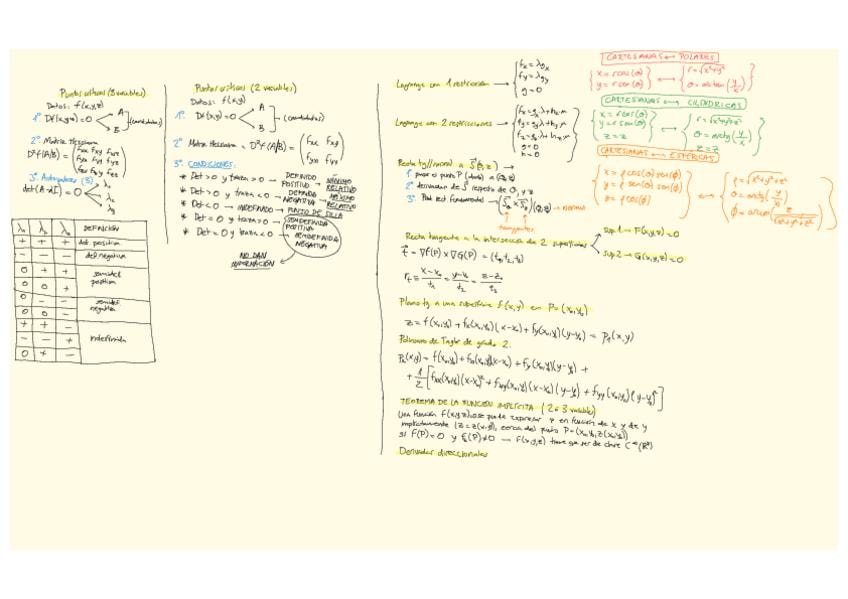 Puntos críticos (3 variables)
Datos: f(x,y,z)
1º Df(x,y,z)=0 < A B } (candidatos)
2º Matriz Hessiana
D²f(A/B) = ( fxx fxy fxz
fyx fyy fyz
fzx fzy fzz )
3º Autovalores (3)
det(A-λI) = 0 < λ₁ λ₂ λ₃
λ₁ λ₂ λ₃ DEFINICIÓN
+ + + def. positiva
- - - def negativa
0 + + semidef
0 0 + positiva
0 - - semidef
0 0 - negativa
+ + -
- - + indefinida
0 + -
Puntos críticos (2 variables)
Datos: f(x,y)
1º Df(x,y)=0 < A B } (candidatos)
2º Matriz Hessiana = D²f(A/B) = ( fxx fxy
fyx fyy )
3º CONDICIONES:
* Det > 0 y traza > 0 → DEFINIDO POSITIVO → MÍNIMO RELATIVO
* Det > 0 y traza < 0 → DEFINIDA NEGATIVA → MÁXIMO RELATIVO
* Det < 0 → INDEFINIDO → PUNTO DE SILLA
* Det = 0 y traza > 0 → SEMIDEFINIDA POSITIVA
* Det = 0 y traza < 0 → SEMIDEFINIDA NEGATIVA
NO DAN INFORMACIÓN
Lagrange con 1 restricción → { fx = λgx
fy = λgy
g = 0
Lagrange con 2 restricciones → { fx = gxλ + hxμ
fy = gyλ + hyμ
fz = gzλ + hzμ
g = 0
h = 0
Recta tg//normal a S(θ,z) →
1º pasar el punto P (dado) a (θ,z)
2º derivadas de S respecto de θ, y z
3º Prod vect fundamental → (Sθ x Sz)(θ,z) → normal
tangentes
Recta tangente a la intersección de 2 superficies < sup.1 → F(x,y,z)=0
sup.2 → G(x,y,z)=0
t = ∇F(P) x ∇G(P) = (t₁, t₂, t₃)
rt = x-x₀/t₁ = y-y₀/t₂ = z-z₀/t₃
Plano tg a una superficie f(x,y) en P=(x₀,y₀)
z = f(x₀,y₀) + fx(x₀,y₀)(x-x₀) + fy(x₀,y₀)(y-y₀) = P₁(x,y)
Polinomio de Taylor de grado 2.
P₂(x,y) = f(x₀,y₀) + fx(x₀,y₀)(x-x₀) + fy(x₀,y₀)(y-y₀) +
+ 1/2 [fxx(x₀,y₀)(x-x₀)² + fxy(x₀,y₀)(x-x₀)(y-y₀) + fyy(x₀,y₀)(y-y₀)²]
TEOREMA DE LA FUNCIÓN IMPLÍCITA (2 o 3 variables)
Una función F(x,y,z)=0 se puede expresar z en función de x y de y
implícitamente (z = z(x,y)), cerca del punto P=(x₀,y₀,z(x₀,y₀))
si F(P)=0 y Fz(P)≠0 → F(x,y,z) tiene que ser de clase C^∞(R³)
Derivadas direccionales
CARTESIANAS ↔ POLARES
{ x = r cos(θ)
y = r sen(θ) } ↔ { r = √x²+y²
θ = arctan(y/x) }
CARTESIANAS ↔ CILÍNDRICAS
{ x = r cos(θ)
y = r sen(θ)
z = z } ↔ { r = √x²+y²
θ = arctg(y/x)
z = z }
CARTESIANAS ↔ ESFÉRICAS
{ x = ρ cos(θ) sen(φ)
y = ρ sen(θ) sen(φ)
z = ρ cos(φ) } ↔ { ρ = √x²+y²+z²
θ = arctg(y/x)
φ = arccos(z/√x²+y²+z²) }